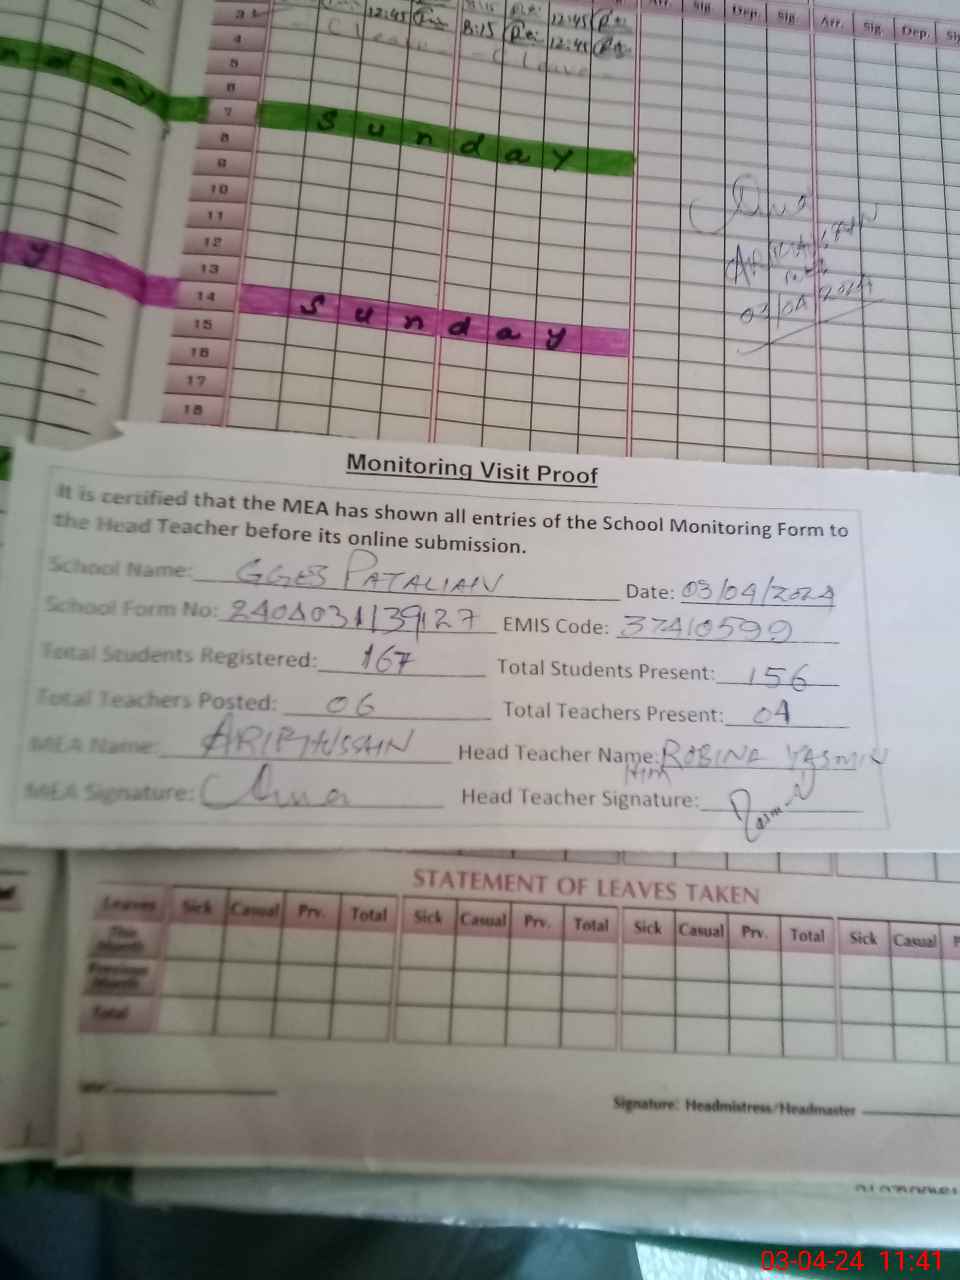 Arr. Sig. Dep. Sig. Arr. Sig. Dep.
3
12:45 8:15 12:45
4 Leave 8:15 12:45
5 Leave
6
7 Sunday
8
9
10
11
12
13
14 Sunday
15
16
17
18
03/04/2024
Monitoring Visit Proof
It is certified that the MEA has shown all entries of the School Monitoring Form to
the Head Teacher before its online submission.
School Name: GGES PATALIAN Date: 03/04/2024
School Form No: 2404031139127 EMIS Code: 37410599
Total Students Registered: 167 Total Students Present: 156
Total Teachers Posted: 06 Total Teachers Present: 04
MEA Name: ARIF HUSSAIN Head Teacher Name: ROBINA YASMIN
MEA Signature: Head Teacher Signature:
STATEMENT OF LEAVES TAKEN
Leaves Sick Casual Prv. Total Sick Casual Prv. Total Sick Casual Prv. Total Sick Casual
This Month
Previous Month
Total
Signature: Headmistress/Headmaster
03-04-24 11:41